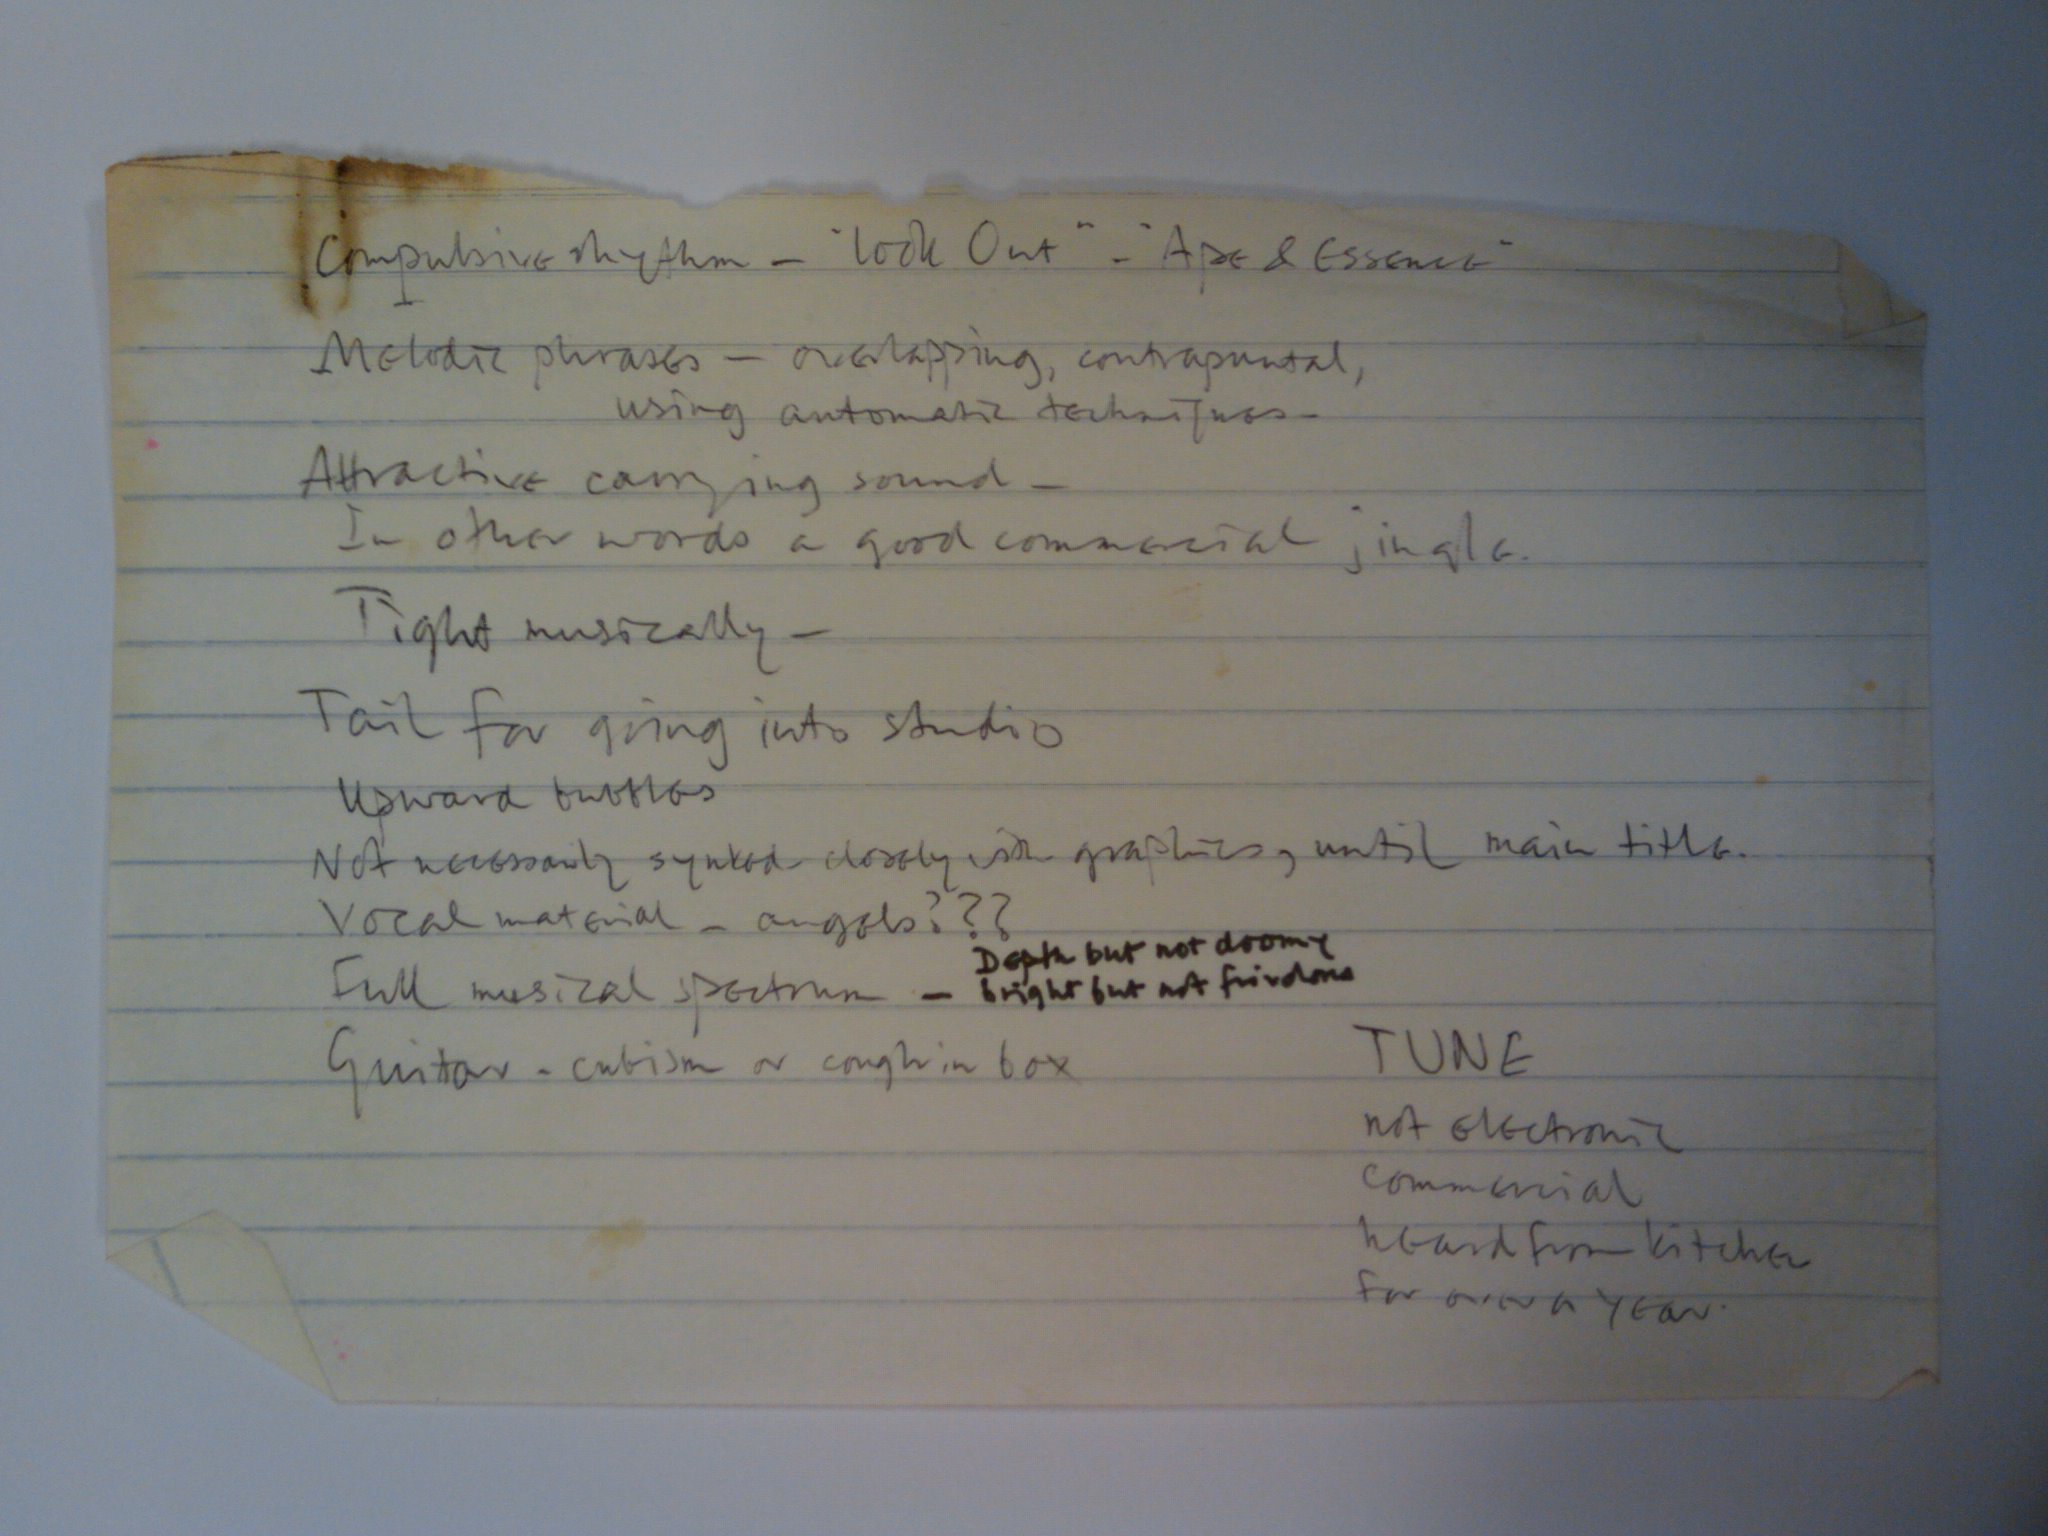 Compulsive rhythm – "Look Out" – "Ape & Essence"
Melodic phrases – overlapping, contrapuntal,
using automatic techniques –
Attractive carrying sound –
In other words a good commercial jingle.
Tight musically –
Tail for going into studio
Upward bubbles
Not necessarily synked closely with graphics, until main title.
Vocal material – angels???
Depth but not doomy
Full musical spectrum – bright but not frivolous
Guitar – cubism or cough in box
TUNE
not electronic
commercial
heard from kitchen
for over a year.